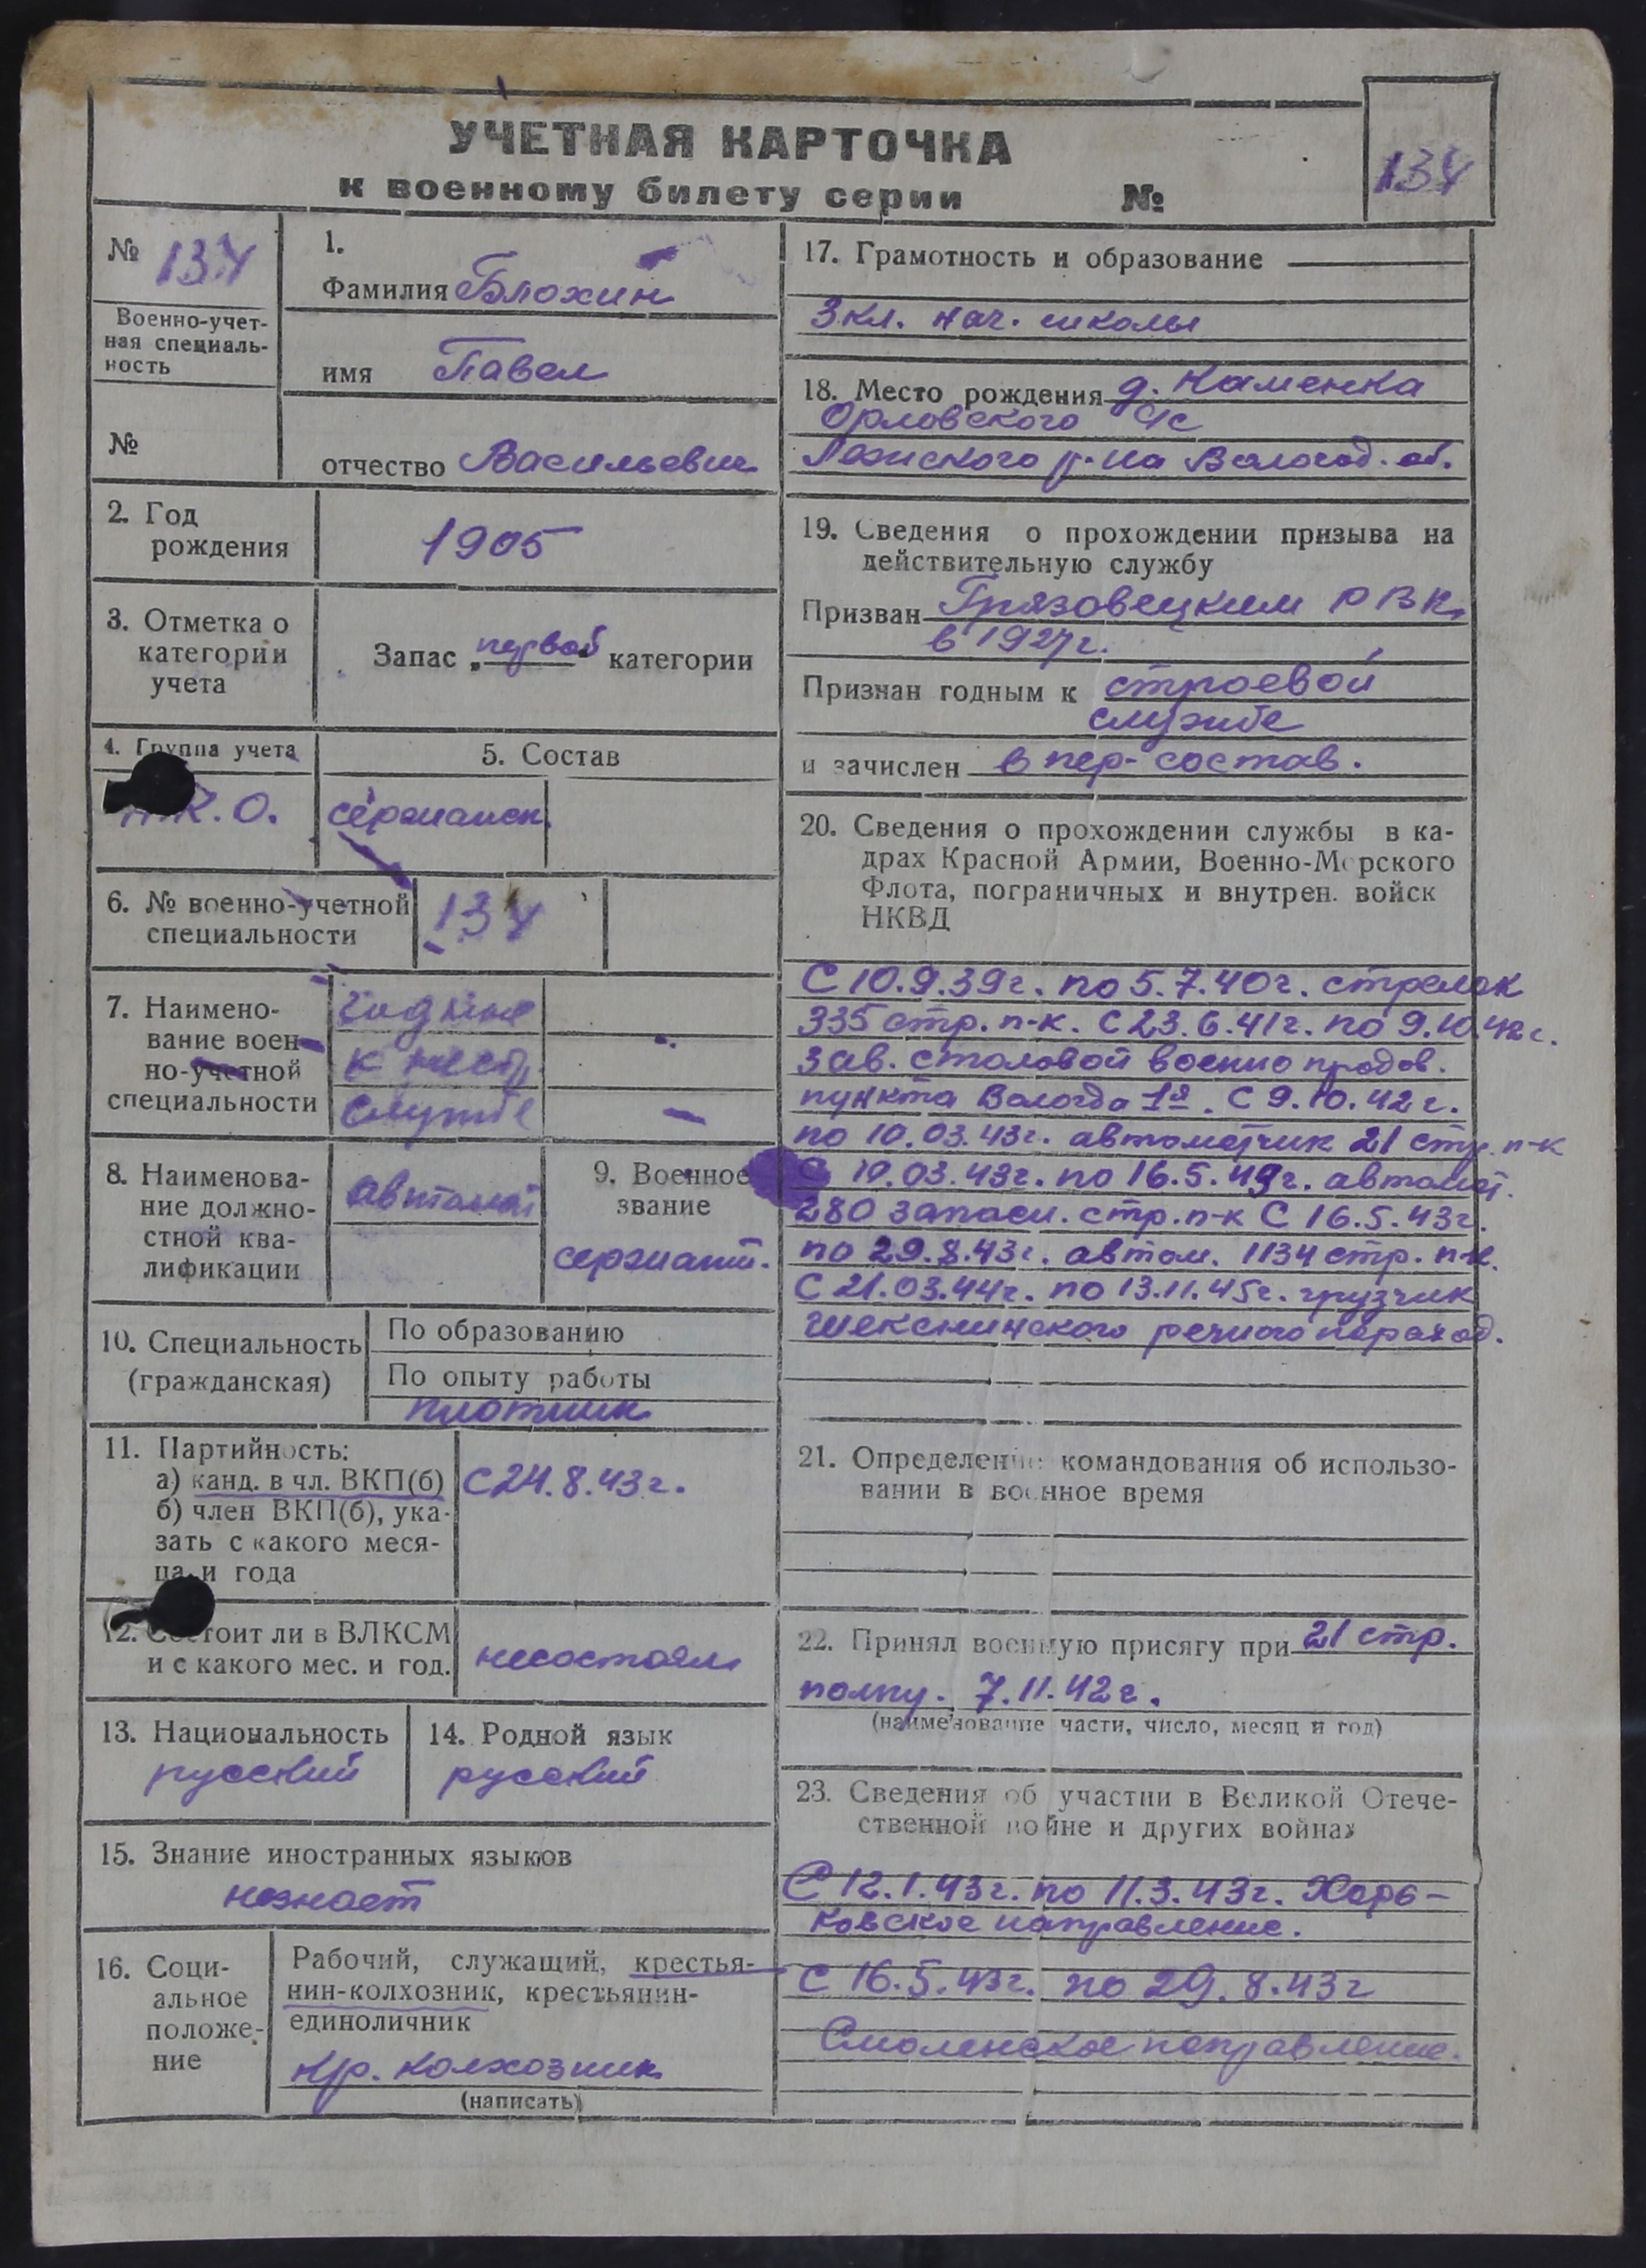 УЧЕТНАЯ КАРТОЧКА
к военному билету серии №
134
№ 134
Военно-учет-
ная специаль-
ность
№
1.
Фамилия Блохин
имя Павел
отчество Васильевич
2. Год
рождения
1905
3. Отметка о
категории
учета
Запас „первой“ категории
4. Группа учета
К.О.
5. Состав
сержанск.
6. № военно-учетной
специальности
134
7. Наимено-
вание воен-
но-учетной
специальности
годные
к нест.
службе
8. Наименова-
ние должно-
стной ква-
лификации
автомат
9. Военное
звание
сержант.
10. Специальность
(гражданская)
По образованию
По опыту работы
плотник
11. Партийность:
а) канд. в чл. ВКП(б)
б) член ВКП(б), ука-
зать с какого меся-
ца и года
С 24.8.43г.
12. Состоит ли в ВЛКСМ
и с какого мес. и год.
несостоял
13. Национальность
русский
14. Родной язык
русский
15. Знание иностранных языков
незнает
16. Соци-
альное
положе-
ние
Рабочий, служащий, крестья-
нин-колхозник, крестьянин-
единоличник
кр. колхозник
(написать)
17. Грамотность и образование
3 кл. нач. школы
18. Место рождения д. Каменка
Орловского с/с
Лежского р-на Вологод. об.
19. Сведения о прохождении призыва на
действительную службу
Призван Грязовецким РВК,
в 1927г.
Признан годным к строевой
службе
и зачислен в пер-состав.
20. Сведения о прохождении службы в ка-
драх Красной Армии, Военно-Морского
Флота, пограничных и внутрен. войск
НКВД
С 10.9.39г. по 5.7.40г. стрелок
335 стр. п-к. С 23.6.41г. по 9.10.42г.
Зав. столовой военно продов.
пункта Вологда 1я. С 9.10.42г.
по 10.03.43г. автоматчик 21 стр. п-к
С 10.03.43г. по 16.5.43г. автомат.
280 запасн. стр. п-к С 16.5.43г.
по 29.8.43г. автом. 1134 стр. п-к.
С 21.03.44г. по 13.11.45г. грузчик
Шекснинского речного пароход.
21. Определение командования об использо-
вании в военное время
22. Принял военную присягу при 21 стр.
полку. 7.11.42г.
(наименование части, число, месяц и год)
23. Сведения об участии в Великой Отече-
ственной войне и других войнах
С 12.1.43г. по 11.3.43г. Харь-
ковское направление.
С 16.5.43г. по 29.8.43г
Смоленское направление.